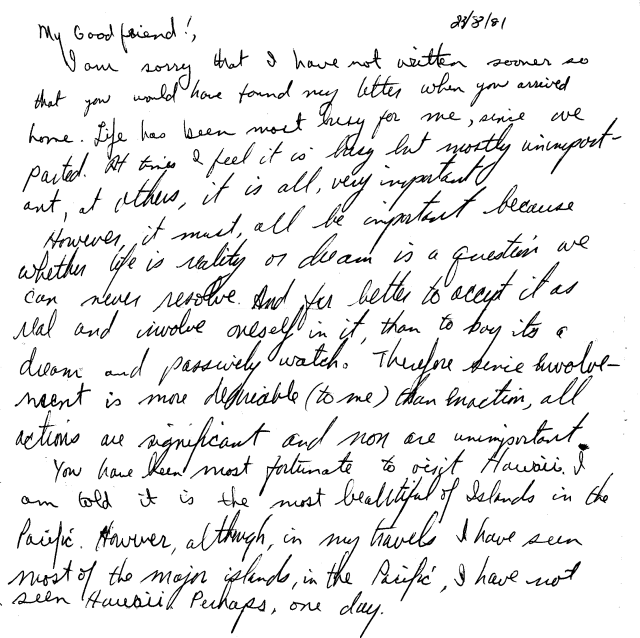 23/8/81
My Good friend!,
I am sorry that I have not written sooner so
that you would have found my letter when you arrived
home. Life has been most busy for me, since we
parted. At times I feel it is busy but mostly unimport-
ant, at others, it is all, very important.
However, it must, all be important because
whether life is reality or dream is a question we
can never resolve. And far better to accept it as
real and involve oneself in it, than to say its a
dream and passively watch. Therefore since involve-
ment is more desirable (to me) than inaction, all
actions are significant and non are unimportant.
You have been most fortunate to visit Hawaii. I
am told it is the most beautiful of Islands in the
Pacific. However, although, in my travels I have seen
most of the major islands, in the Pacific, I have not
seen Hawaii. Perhaps, one day.